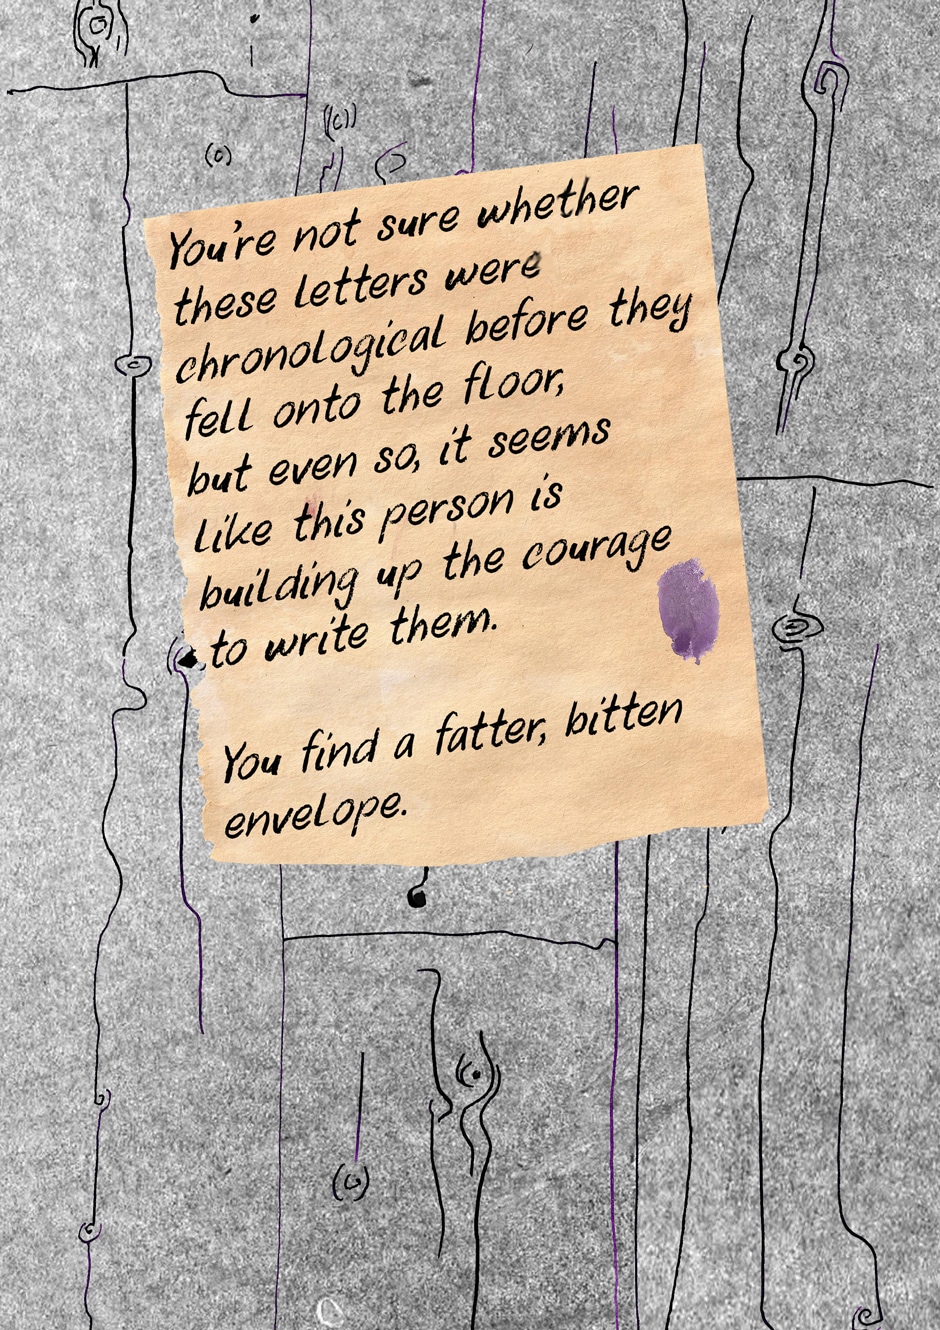 You're not sure whether
these letters were
chronological before they
fell onto the floor,
but even so, it seems
like this person is
building up the courage
to write them.
You find a fatter, bitten
envelope.